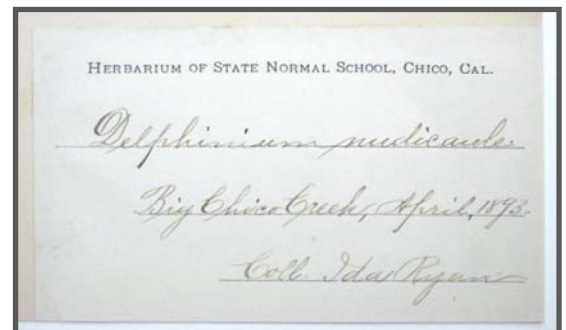 HERBARIUM OF STATE NORMAL SCHOOL, CHICO, CAL.
Delphinium nudicaule.
Big Chico Creek, April, 1893.
Coll. Ida Ryan